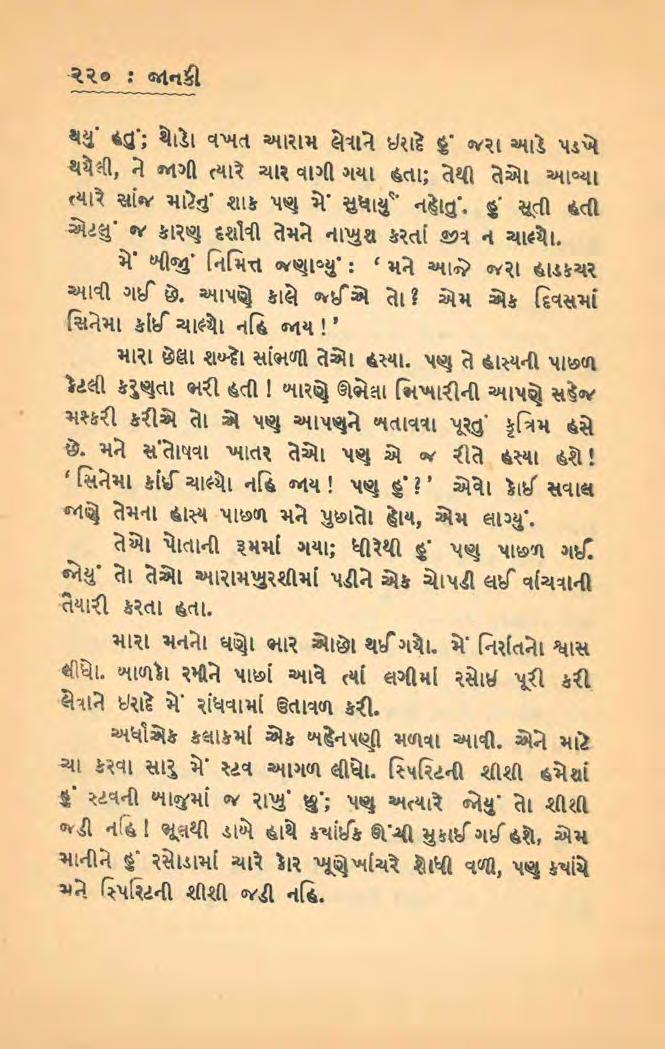 ૨૨૦ : જાનકી
થયું હતું; થોડો વખત આરામ લેવાને ઈરાદે હું જરા આડે પડખે
થયેલી, ને જાગી ત્યારે ચાર વાગી ગયા હતા; તેથી તેઓ આવ્યા
ત્યારે સાંજ માટેનું શાક પણ મેં સુધાર્યું નહોતું. હું સૂતી હતી
એટલું જ કારણ દર્શાવી તેમને નાખુશ કરતાં જીવ ન ચાલ્યો.
મેં બીજું નિમિત્ત જણાવ્યું : ‘ મને આજે જરા હાડકચર
આવી ગઈ છે. આપણે કાલે જઈએ તો ? એમ એક દિવસમાં
સિનેમા કાંઈ ચાલ્યો નહિ જાય ! ’
મારા છેલા શબ્દો સાંભળી તેઓ હસ્યા. પણ તે હાસ્યની પાછળ
કેટલી કરુણતા ભરી હતી ! બારણે ઊભેલા ભિખારીની આપણે સહેજ
મશ્કરી કરીએ તો એ પણ આપણને બતાવવા પૂરતું કૃત્રિમ હસે
છે. મને સંતોષવા ખાતર તેઓ પણ એ જ રીતે હસ્યા હશે !
‘ સિનેમા કાંઈ ચાલ્યો નહિ જાય ! પણ હું ? ’ એવો કોઈ સવાલ
જાણે તેમના હાસ્ય પાછળ મને પુછાતો હોય, એમ લાગ્યું.
તેઓ પોતાની રૂમમાં ગયા; ધીરેથી હું પણ પાછળ ગઈ.
જોયું તો તેઓ આરામખુરશીમાં પડીને એક ચોપડી લઈ વાંચવાની
તૈયારી કરતા હતા.
મારા મનનો ઘણો ભાર ઓછો થઈ ગયો. મેં નિરાંતનો શ્વાસ
લીધો. બાળકો રમીને પાછાં આવે ત્યાં લગીમાં રસોઈ પૂરી કરી
લેવાને ઈરાદે મેં રાંધવામાં ઉતાવળ કરી.
અર્ધાએક કલાકમાં એક બહેનપણી મળવા આવી. એને માટે
ચા કરવા સારુ મેં સ્ટવ આગળ લીધો. સ્પિરિટની શીશી હમેશાં
હું સ્ટવની બાજુમાં જ રાખું છું; પણ અત્યારે જોયું તો શીશી
જડી નહિ ! ભૂલથી ડાબે હાથે ક્યાંઈક ઊંચી મુકાઈ ગઈ હશે, એમ
માનીને હું રસોડામાં ચારે કોર ખૂણેખાંચરે શોધી વળી, પણ ક્યાંયે
મને સ્પિરિટની શીશી જડી નહિ.